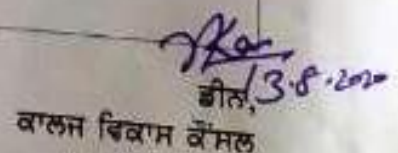 ਡੀਨ, 13.8.2020
ਕਾਲਜ ਵਿਕਾਸ ਕੌਂਸਲ